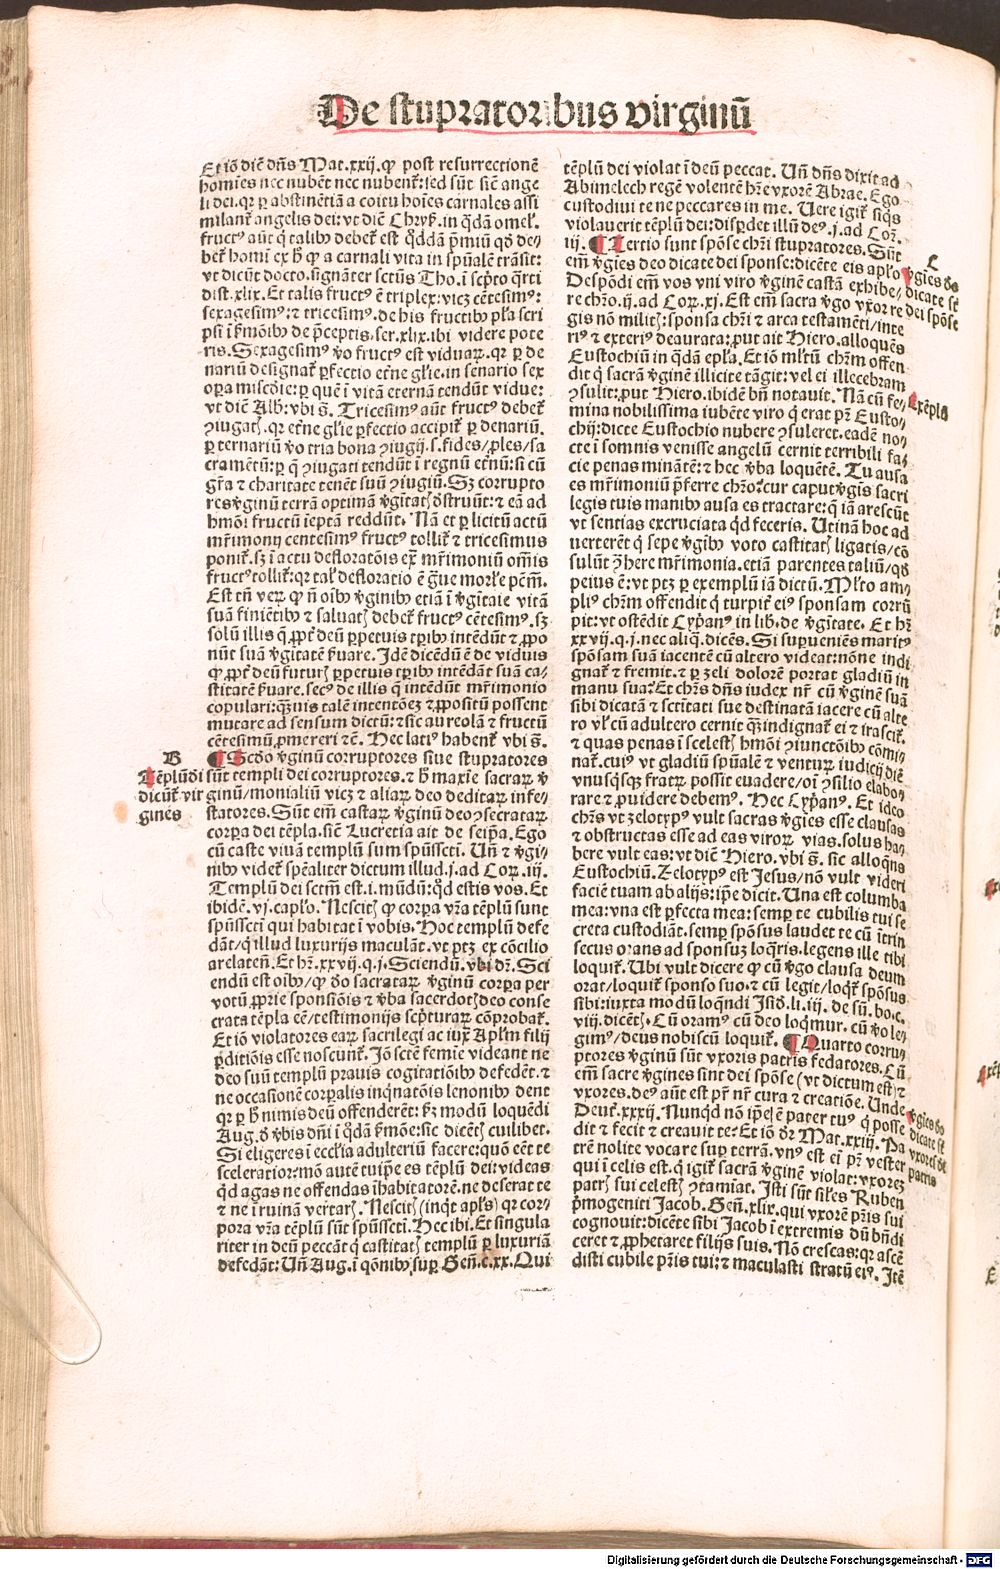 De stupratoribus virginū
Et iō diē dn̄s Mat.xxij. ꝙ post resurrectionē
homīes nec nubēt nec nubent᷑: sed sūt sic̄ ange
li dei. qꝛ ꝑ abstinētiā a coitu hoīes carnales assi
milant᷑ angelis dei: vt diē Chrys. in qdā omel.
fructꝰ aūt q̄ talibꝰ debet᷑ est qddā p̄miū qd̓ de⸗
bet᷑ homī ex h̓ ꝙ a carnali vita in spūalē trāsit:
vt dicūt docto. signāter sctūs Tho. ī scp̄to qrti
dist.xlix. Et talis fructꝰ ē triplex: vicꝫ cētesimꝰ:
sexagesimꝰ: ⁊ tricesimꝰ. de his fructibꝰ pła scri
psi ī s̓mōibꝰ de p̄ceptis. ser.xlix. ibi videre pote
ris. Sexagesimꝰ v̓o fructꝰ est viduaꝝ. qꝛ ꝑ de
nariū designat᷑ ꝑfectio etn̄e gl̓ie. in senario sex
oꝑa miscd̓ie: ꝑ que ī vitā eternā tendūt vidue:
vt diē Alb. vbi s̄. Tricesimꝰ aūt fructꝰ debet᷑
ꝯiugatꝭ. qꝛ etn̄e gl̓ie ꝑfectio accipit᷑ ꝑ denariū.
ꝑ ternariū v̓o tria bona ꝯiugij. s. fides/ ꝓles/ sa
cramētū: ꝑ q̄ ꝯiugati tendūt ī regnū etn̄ū: si cū
gr̄a ⁊ charitate tenēt suū ꝯiugiū. Sꝫ corrupto
res v̓ginū terrā optimā v̓gītatꝭ d̓struūt: ⁊ eā ad
hmōi fructū īeptā reddūt. Nā et ꝑ licitū actū
mr̄imonij centesimꝰ fructꝰ tollit᷑ ⁊ tricesimus
ponit᷑. sꝫ ī actu defloratōis ext̄ mr̄imoniū om̄is
fructꝰ tollit᷑: qꝛ tal̓ defloratio ē g̓ue morl̓e pc̄m̄.
Est tn̄ veꝝ ꝙ n̄ oībꝰ v̓ginibꝰ etiā ī v̓gītate vitā
suā finiētibꝰ ⁊ saluatꝭ debet᷑ fructꝰ cētesimꝰ. sꝫ
solū illis q̄ ꝓpt̓ deū ꝑpetuis tꝑibꝰ intēdūt ⁊ ꝓpo
nūt suā v̓gītatē s̓uare. Idē dicēdū ē de viduis
ꝙ ꝓpt̓ deū futurꝭ ꝑpetuis tꝑibꝰ intēdāt suā ca⸗
stitatē s̓uare. secꝰ de illis q̄ intēdūt mr̄imonio
copulari: qꝫuis talē intentōeꝫ ⁊ ꝓpositū possent
mutare ad sensum dictū: ⁊ sic aureolā ⁊ fructū
cētesimū ꝓmereri ⁊c̄. Hec latiꝰ habent᷑ vbi s̄.
B
¶ Scd̓o v̓ginū corruptores siue stupratores
Tēplū d̓i
sūt templi dei corruptores. ⁊ h̓ maxīe sacraꝝ v̓
dicūt᷑ vir
ginū/ monialiū vicꝫ ⁊ aliaꝝ deo deditaꝝ infe⸗
gines
statores. Sūt em̄ castaꝝ v̓ginū deo ꝯsecrataꝝ
corꝑa dei tēpla. sic̄ Lucretia ait de seip̄a. Ego
cū caste viuā templū sum spūssctī. Uñ ⁊ v̓gi⸗
nibꝰ videt᷑ spēaliter dictum illud. j. ad Coꝝ. iij.
Templū dei sctm̄ est. i. mūdū: qd̓ estis vos. Et
ibidē. vj. capło. Nescitꝭ ꝙ corꝑa vr̄a tēplū sunt
spūssctī qui habitat ī vobis. Hoc templū defe
dāt/ q̄ illud luxurijs maculāt. vt ptꝫ ex cōcilio
arelateñ. Et hr̄.xxvij.q.j. Sciendū. vbi dr̄. Sci
endū est oībꝰ/ ꝙ d̓o sacrataꝝ v̓ginū corꝑa per
votū ꝓprie sponsiōis ⁊ v̓ba sacerdotꝭ deo conse
crata tēpla eē/ testimonijs scp̄turaꝝ cōprobat᷑.
Et iō violatores eaꝝ sacrilegi ac iux̄ Apl̓m filij
ꝑditiōis esse noscunt᷑. Iō scтē femīe videant ne
deo suū templū prauis cogitatiōibꝰ defedēt. ⁊
ne occasionē corꝑalis inqnatōis lenonibꝰ dent
qꝛ ꝑ h̓ nimis deū offenderēt: s̓ꝫ modū loquēdi
Aug. d̓ v̓bis dn̄i ī qdā s̓mōe: sic dicētꝭ cuilibet.
Si eligeres ī eccl̓ia adulteriū facere: quō eēt te
sceleratior: mō autē tuip̄e es tēplū dei: videas
qd agas ne offendas īhabitatorē. ne deserat te
⁊ ne ī ruinā vertarꝭ. Nescitꝭ (inqt apl̓s) qꝛ cor⸗
pora vr̄a tēplū sūt spūssctī. Hec ibi. Et singula
riter in deū peccāt q̄ castitatꝭ templū ꝑ luxuriā
defedāt: Uñ Aug. ī qōnibꝰ suꝑ Geñ. c.xx. Qui
tēplū dei violat ī deū peccat. Uñ dn̄s dixit ad
Abimelech regē volentē hr̄e vxorē Abrae. Ego
custodiui te ne peccares in me. Uere igit᷑ siqs
violauerit tēplū dei: disꝑdet illū deꝰ. j. ad Coꝝ.
iij. ¶ Tertio sunt spōse chr̄i stupratores. Sūt
C
em̄ v̓gīes deo dicate dei sponse: dicēte eis apl̓o
v̓gīes d̓o
Despōdi em̄ vos vni viro v̓ginē castā exhibe⸗
dicate st̄
re chr̄o. ij. ad Coꝝ. xj. Est em̄ sacra v̓go vxor re
dei spōse
gis nō militꝭ: sponsa chr̄i ⁊ arca testamēti/ inte
riꝰ ⁊ exteriꝰ deaurata: ꝓut ait Hiero. alloquēs
Eustochiū in qdā epl̓a. Et iō ml̓tū chr̄m offen
dit q̄ sacrā v̓ginē illicite tāgit: vel ei illecebram
ꝯsulit: ꝓut Hiero. ibidē bn̄ notauit. Nā cū fe⸗
Exēplū
mina nobilissima iubēte viro q̄ erat pr̄ Eusto⸗
chij: dicte Eustochio nubere ꝯsuleret. eadē no⸗
cte ī somnis venisse angelū cernit terribili fa⸗
cie penas minātē: ⁊ hec v̓ba loquētē. Tu ausa
es mr̄imoniū p̄ferre chr̄o? cur caput v̓gīs sacri
legis tuis manibꝰ ausa es tractare: q̄ iā arescūt
vt sentias excruciata qd feceris. Utinā hoc ad
uerterēt q̄ sepe v̓gībꝰ voto castitatꝭ ligatis/ cō
sulūt ꝯhere mr̄imonia. etiā parentes taliū/ qd̓
peius ē: vt ptꝫ ꝑ exemplū iā dictū. Ml̓to am⸗
pliꝰ chr̄m offendit q̄ turpit᷑ eiꝰ sponsam corrū
pit: vt ostēdit Cyp̄anꝰ in lib. de v̓gītate. Et hr̄
xxvij.q.j. nec aliq. dicēs. Si suꝑueniēs maritꝰ
spōsam suā iacentē cū altero videat: nōne indi
gnat᷑ ⁊ fremit. ⁊ ꝑ zeli dolorē portat gladiū in
manu sua? Et chr̄s dn̄s iudex nr̄ cū v̓ginē suā
sibi dicatā ⁊ sctītati sue destinatā iacere cū alte
ro vl̓ cū adultero cernit qꝫ indignat᷑ ei ⁊ irascit᷑.
⁊ quas penas ī scelestꝭ hmōi ꝯiunctōibꝰ cōmi⸗
nat᷑. cuiꝰ vt gladiū spūalē ⁊ venturꝭ iudicij diē
vnusqsqꝫ fratꝝ possit euadere/ oī ꝯsilio elabo⸗
rare ⁊ ꝓuidere debemꝰ. Hec Cyp̄anꝰ. Et ideo
chr̄s vt zelotypꝰ vult sacras v̓gīes esse clausas
⁊ obstructas esse ad eas viroꝝ vias. solus ha⸗
bere vult eas: vt diē Hiero. vbi s̄. sic alloqn̄s
Eustochiū. Zelotypꝰ est Jesus/ nō vult videri
faciē tuam ab alijs: ip̄e dicit. Una est columba
mea: vna est ꝑfecta mea: semꝑ te cubilis tui se
creta custodiāt. semꝑ spōsus laudet te cū ītrin
secus orans ad sponsuꝫ loqr̄is. legens ille tibi
loquit᷑. Ubi vult dicere ꝙ cū v̓go clausa deum
orat/ loquit᷑ sponso suo. ⁊ cū legit/ loqt᷑ spōsus
sibi: iuxta modū loqn̄di Isid̓. li. iij. de sū. bo. c.
viij. dicētꝭ. Cū oramꝰ cū deo loqmur. cū v̓o le⸗
gimꝰ/ deus nobiscū loquit᷑. ¶ Quarto corru⸗
ptores v̓ginū sūt vxoris patris fedatores. Cū
em̄ sacre v̓gines sint dei spōse (vt dictum est) ⁊
vxores. deꝰ aūt est pr̄ nr̄ cura ⁊ creatiōe. Unde
v̓gīes d̓o
Deut᷑.xxxij. Nunqd nō ip̄e ē pater tuꝰ q̄ posse
dicate st̄
dit ⁊ fecit ⁊ creauit te? Et iō d̓r Mat.xxiij. Pa
vxores d̓i
trē nolite vocare suꝑ terrā. vnꝰ est ei pr̄ vester
patris
qui ī celis est. q̄ igit᷑ sacrā v̓ginē violat: vxoreꝫ
patrꝭ sui celestꝭ ꝯtamīat. Isti sūt sil̓es Ruben
p̄mogeniti Jacob. Geñ.xlix. qui vxorē pr̄is sui
cognouit: dicēte sibi Jacob ī extremis dū bn̄di
ceret ⁊ ꝓphetaret filijs suis. Nō crescas: qꝛ ascē
disti cubile pr̄is tui: ⁊ maculasti stratū eiꝰ. Itē
E
Digitalisierung gefördert durch die Deutsche Forschungsgemeinschaft - DFG